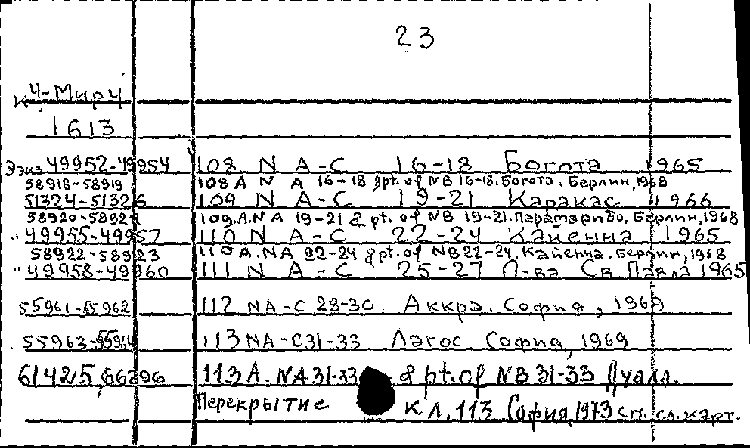 23
К 4-Миру
1613
Экз 49952-49954 108 N A-C 16-18 Богота 1965
58918-58919 108A N A 16-18 & pt. of NB 16-18. Богота. Берлин, 1968
51324-51326 109 N A-C 19-21 Каракас 1966
58920-58921 109A.NA 19-21 & pt. of NB 19-21. Парамарибо, Берлин, 1968
" 49955-49957 110 N A-C 22-24 Кайенна 1965
58922-58923 110A. NA 22-24 & pt. of NB 22-24. Кайенна. Берлин, 1968
" 49958-49960 111 N A-C 25-27 О-ва Св. Павла 1965
55961-55962 112 NA-C 28-30 Аккра. София, 1969
55963-55964 113 NA-C 31-33 Лагос София, 1969
61425, 66396 113A. NA 31-33 & pt. of NB 31-33 Дуала.
Перекрытие К Л. 113 София, 1973 сп. сл. карт.